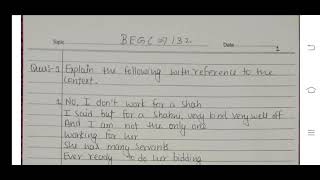 Topic BEGC 132 Date
1
Ques:-1 Explain the following with reference to the
context.
1. No, I don't work for a Shah
I said but for a Shahni, very kind very well off
And I am not the only one
Working for her
She has many servants
Ever ready to do her bidding